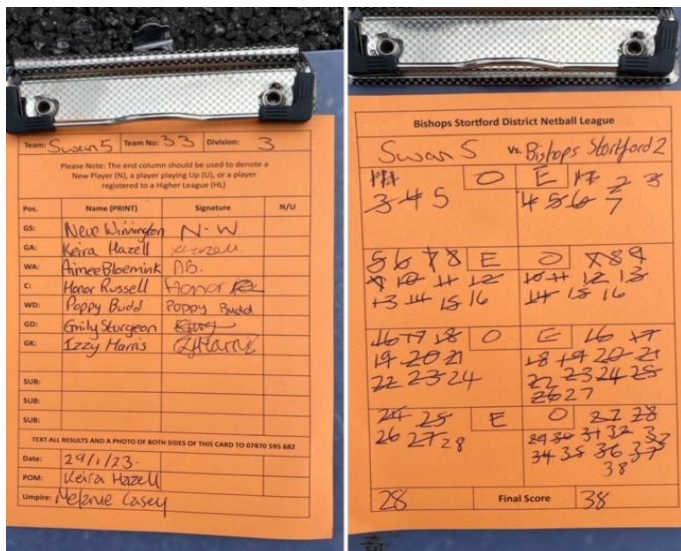 Team: Swan 5 Team No: 33 Division: 3
Please Note: The end column should be used to denote a
New Player (N), a player playing Up (U), or a player
registered to a Higher League (HL)
Pos. Name (PRINT) Signature N/U
GS: Neve Winnington N-W
GA: Keira Hazell
WA: Aimee Bloemink AB.
C: Honor Russell Honor
WD: Poppy Budd Poppy Budd
GD: Emily Sturgeon
GK: Izzy Harris
SUB:
SUB:
SUB:
TEXT ALL RESULTS AND A PHOTO OF BOTH SIDES OF THIS CARD TO 07870 595 682
Date: 29/1/23.
POM: Keira Hazell
Umpire: Melanie Casey
Bishops Stortford District Netball League
Swan 5 Vs. Bishops Stortford 2
O E 2 3
3 4 5 4 5 6 7
5 6 7 8 E O 7 8 9
9 10 11 12 10 11 12 13
13 14 15 16 14 15 16
16 17 18 O E 16 17
19 20 21 18 19 20 21
22 23 24 22 23 24 25
26 27
24 25 E O 27 28
26 27 28 29 30 31 32 33
34 35 36 37
38
28 Final Score 38